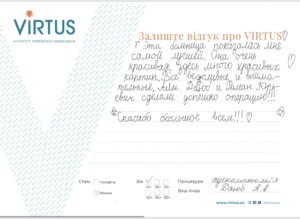 VIRTUS
ІНСТИТУТ ПЛАСТИЧНОЇ МЕДИЦИНИ
Залиште відгук про VIRTUS!
Эта больница показалась мне
самой лучшей. Она очень
красивая, здесь много красивых
картин. Все вежливые и внима-
тельные. Али Давод и Роман Юрь-
евич сделали успешно операцию!!!
Спасибо большое всем!!! ♡
Стать
Чоловіча
Жіноча
Вік
Процедура
Ваш лікар
Давод А. А.
www.virtus.ua